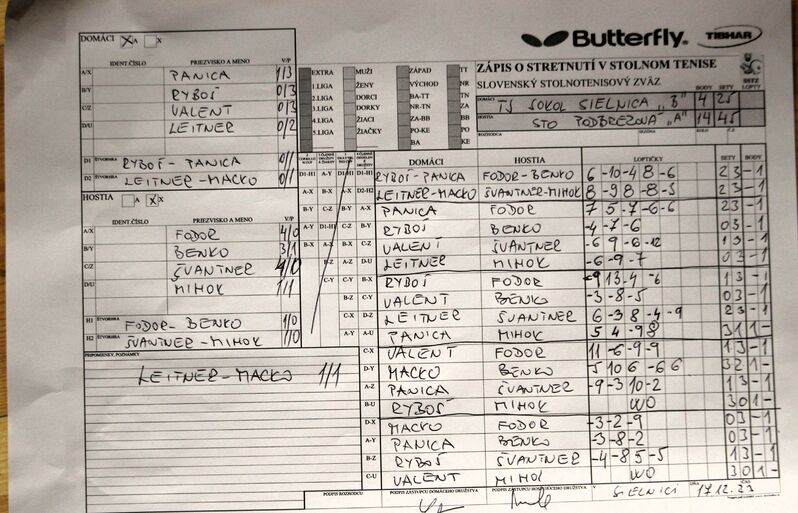 Butterfly. TIBHAR
DOMÁCI X A X
IDENT.ČÍSLO PRIEZVISKO A MENO V/P
A/X PANICA 1/3
B/Y RYBOŠ 0/3
C/Z VALENT 0/3
D/U LEITNER 0/2
D1 ŠTVORHRA RYBOŠ - PANICA 0/1
D2 ŠTVORHRA LEITNER - MACKO 0/1
HOSTIA A X X
IDENT.ČÍSLO PRIEZVISKO A MENO V/P
A/X FODOR 4/0
B/Y BENKO 3/1
C/Z ŠVANTNER 4/0
D/U MIHOK 1/1
H1 ŠTVORHRA FODOR - BENKO 1/0
H2 ŠTVORHRA ŠVANTNER - MIHOK 1/0
PRIPOMIENKY, POZNÁMKY
LEITNER - MACKO 1/1
EXTRA MUŽI ZÁPAD TT
1.LIGA ŽENY VÝCHOD NR
2.LIGA DORCI BA-TT TN
3.LIGA DORKY NR-TN ZA
4.LIGA ŽIACI ZA-BB BB
5.LIGA ŽIAČKY PO-KE PO
BA KE
ZÁPIS O STRETNUTÍ V STOLNOM TENISE
SLOVENSKÝ STOLNOTENISOVÝ ZVÄZ BODY SETY LOPTY
DOMÁCI TJ SOKOL SIELNICA "B" 4 25
HOSTIA STO PODBREZOVÁ "A" 14 45
ROZHODCA SEZÓNA KOLO
DOMÁCI HOSTIA LOPTIČKY SETY BODY
D1-H1 RYBOŠ - PANICA FODOR - BENKO 6 -10 -4 8 -6 2 3 - 1
D2-H2 LEITNER - MACKO ŠVANTNER - MIHOK 8 -9 8 -8 -5 2 3 - 1
A-X PANICA FODOR 7 5 -7 -6 -6 2 3 - 1
B-Y RYBOŠ BENKO -4 -7 -6 0 3 - 1
C-Z VALENT ŠVANTNER -6 9 -6 -12 1 3 - 1
D-U LEITNER MIHOK -6 -9 -7 0 3 - 1
B-X RYBOŠ FODOR -9 13 -4 -6 1 3 - 1
C-Y VALENT BENKO -3 -8 -5 0 3 - 1
D-Z LEITNER ŠVANTNER 6 -3 8 -4 -9 2 3 - 1
A-U PANICA MIHOK 5 4 -9 8 3 1 1 -
C-X VALENT FODOR 11 -6 -9 -9 1 3 - 1
D-Y MACKO BENKO -5 10 6 -6 6 3 2 1 -
A-Z PANICA ŠVANTNER -9 -3 10 -2 1 3 - 1
B-U RYBOŠ MIHOK WO 3 0 1 -
D-X MACKO FODOR -3 -2 -9 0 3 - 1
A-Y PANICA BENKO -3 -8 -2 0 3 - 1
B-Z RYBOŠ ŠVANTNER -4 -8 5 -5 1 3 - 1
C-U VALENT MIHOK WO 3 0 1 -
PODPIS ROZHODCU PODPIS ZÁSTUPCU DOMÁCEHO DRUŽSTVA PODPIS ZÁSTUPCU HOSŤUJÚCEHO DRUŽSTVA V SIELNICI DŇA 17.12.23